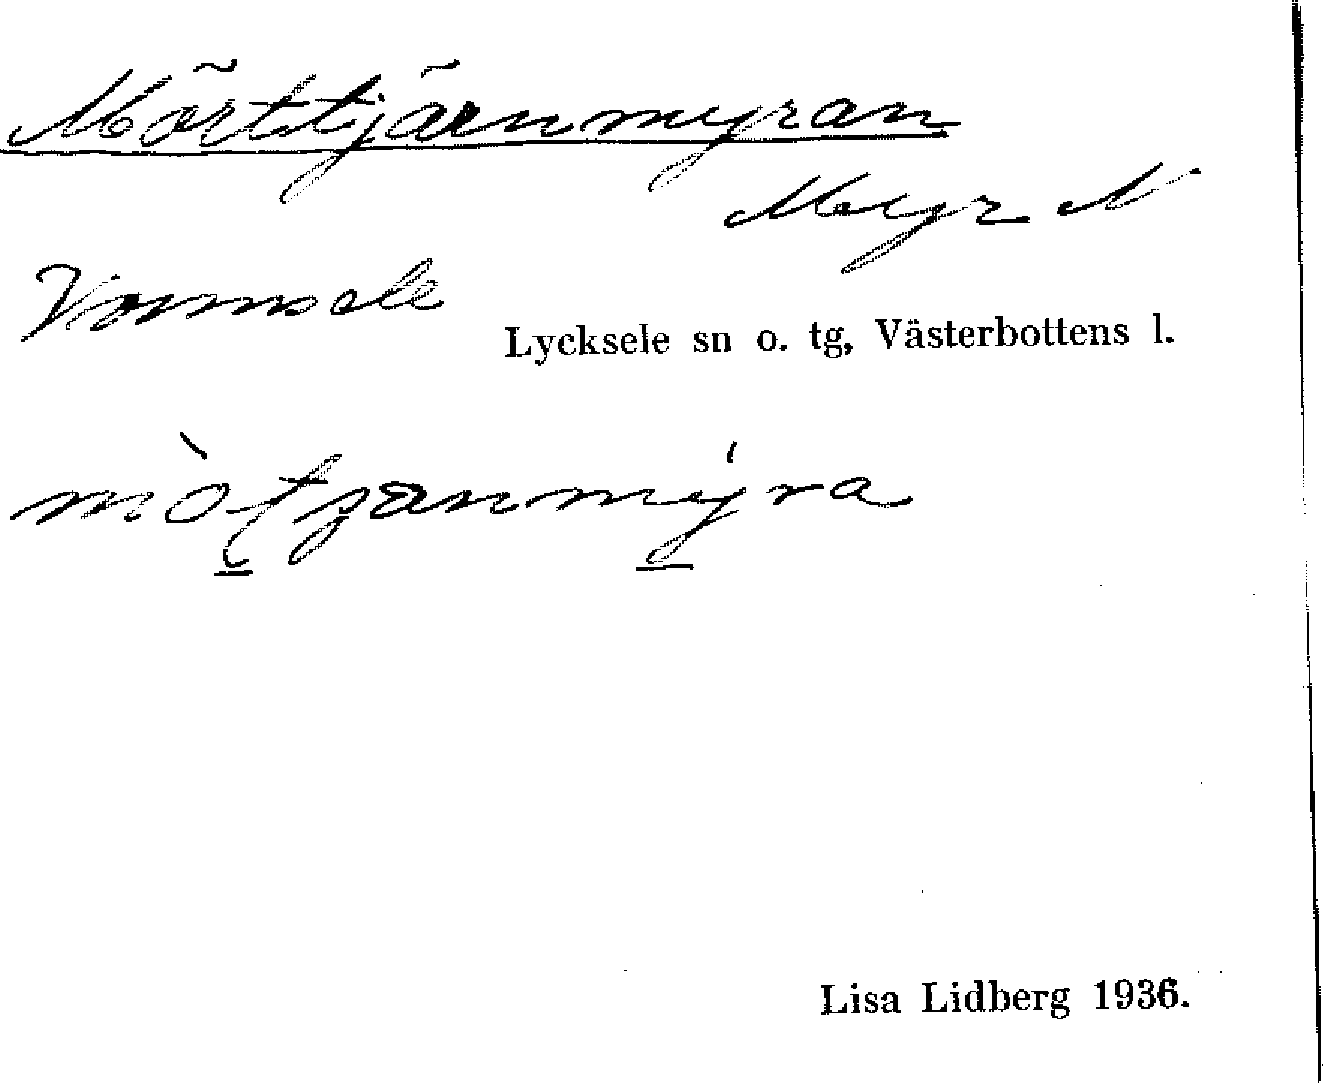 Mörttjärnmyran
Myr N
Vormsele
Lycksele sn o. tg, Västerbottens l.
Lisa Lidberg 1936.